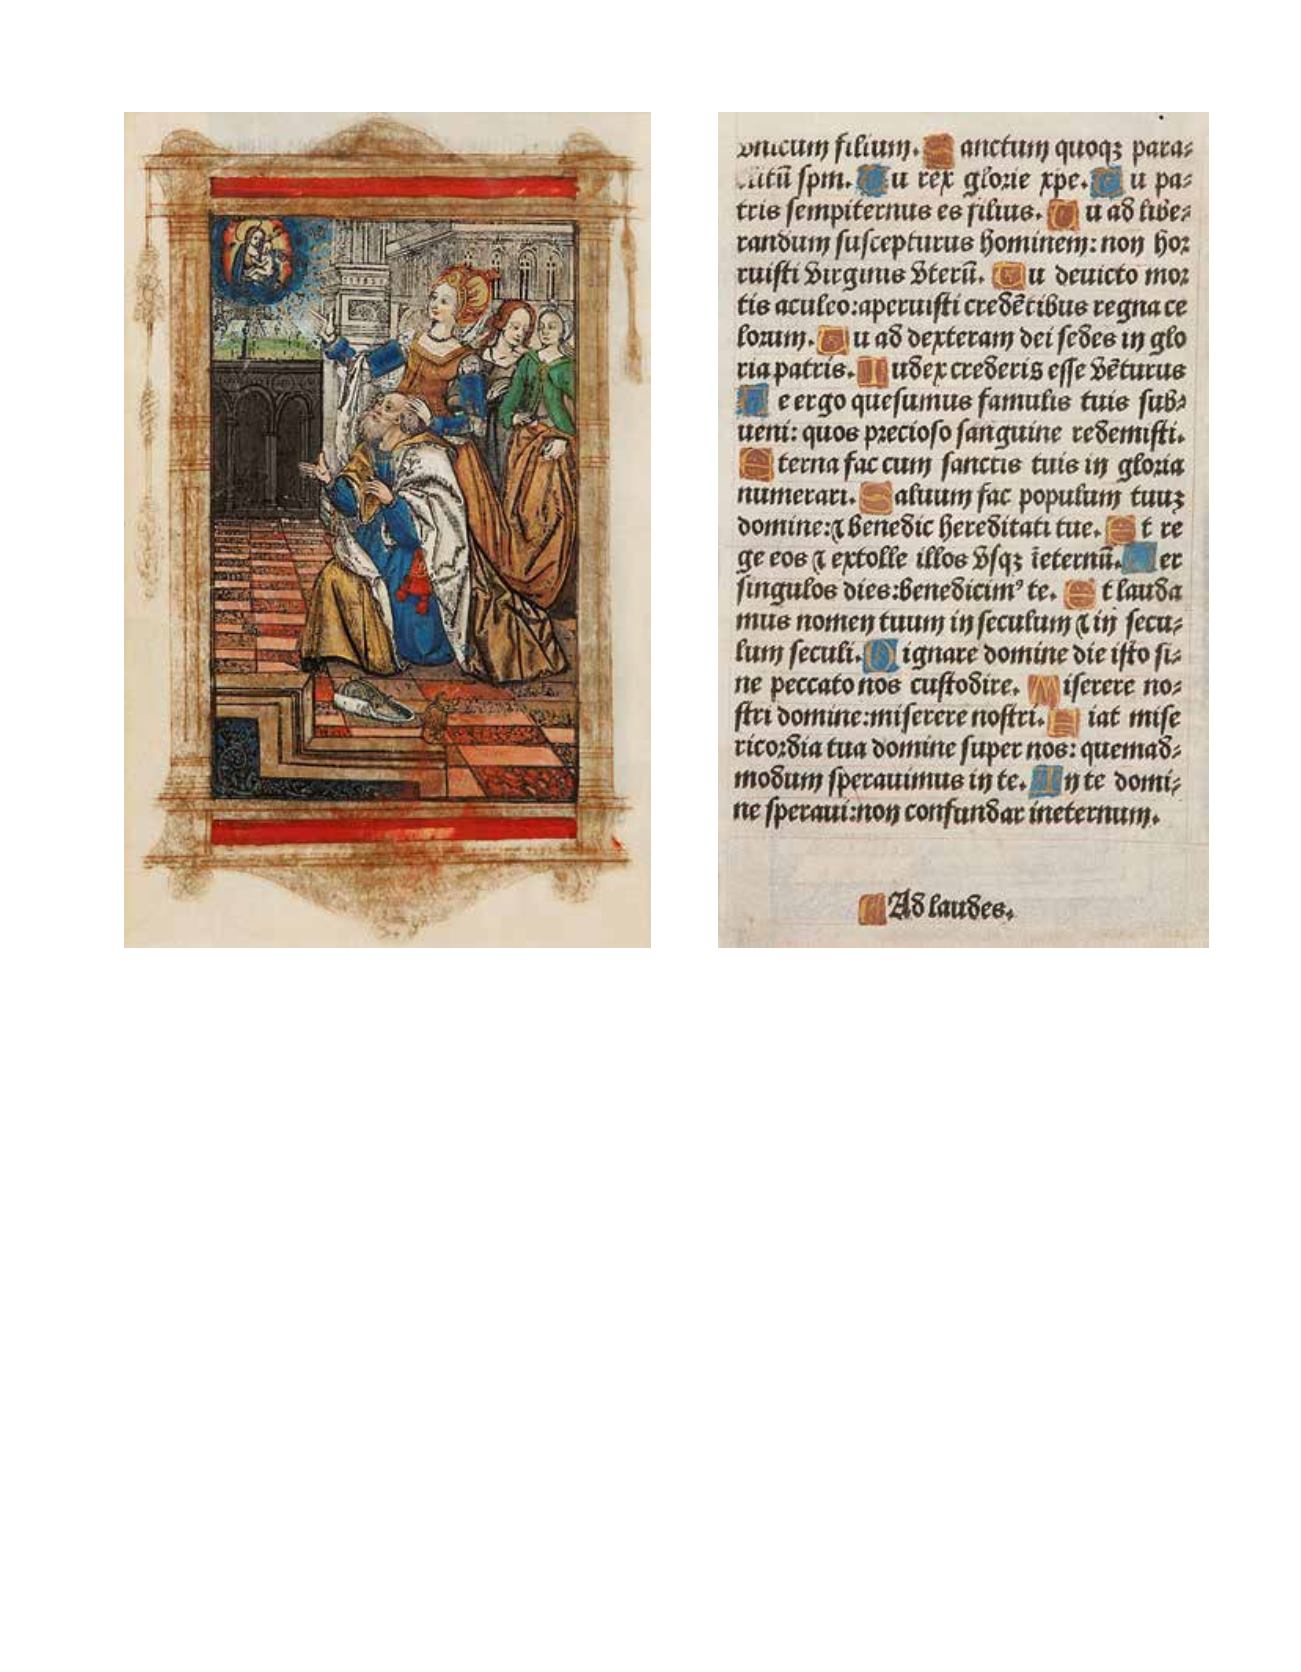 vnicum filium. Sanctum quoqꝫ para⸗
clitū spm. Tu rex glorie xpe. Tu pa⸗
tris sempiternus es filius. Tu ad libe⸗
randum suscepturus hominem: non hor
ruisti virginis vterū. Tu deuicto mor
tis aculeo: aperuisti credētibus regna ce
lorum. Tu ad dexteram dei sedes in glo
ria patris. Iudex crederis esse vēturus
Te ergo quesumus famulis tuis sub⸗
ueni: quos precioso sanguine redemisti.
Eterna fac cum sanctis tuis in gloria
numerari. Saluum fac populum tuuꝫ
domine: ⁊ benedic hereditati tue. Et re
ge eos ⁊ extolle illos vsqꝫ īeternū. Per
singulos dies: benedicimꝰ te. Et lauda
mus nomen tuum in seculum ⁊ in secu⸗
lum seculi. Dignare domine die isto si⸗
ne peccato nos custodire. Miserere no⸗
stri domine: miserere nostri. Fiat mise
ricordia tua domine super nos: quemad⸗
modum sperauimus in te. In te domi⸗
ne speraui: non confundar ineternum.
Ad laudes.